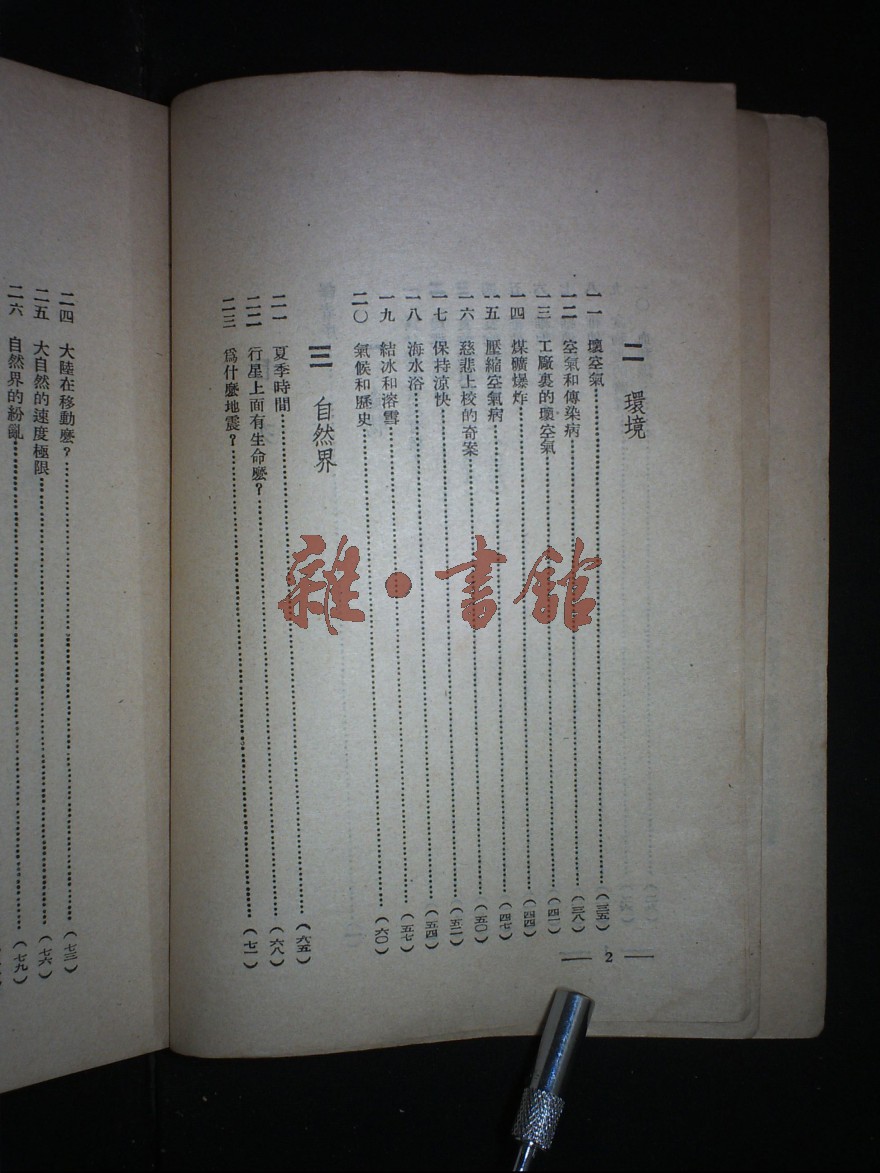 二　環境
一一　壞空氣……（三五）
一二　空氣和傳染病……（三八）
一三　工廠裏的壞空氣……（四一）
一四　煤礦爆炸……（四四）
一五　壓縮空氣病……（四七）
一六　慈悲上校的奇案……（五〇）
一七　保持涼快……（五二）
一八　海水浴……（五四）
一九　結冰和溶雪……（五七）
二〇　氣候和歷史……（六〇）
三　自然界
二一　夏季時間……（六五）
二二　行星上面有生命麼？……（六八）
二三　爲什麼地震？……（七一）
— 2 —
二四　大陸在移動麼？……（七三）
二五　大自然的速度極限……（七六）
二六　自然界的紛亂……（七九）
雜·書館